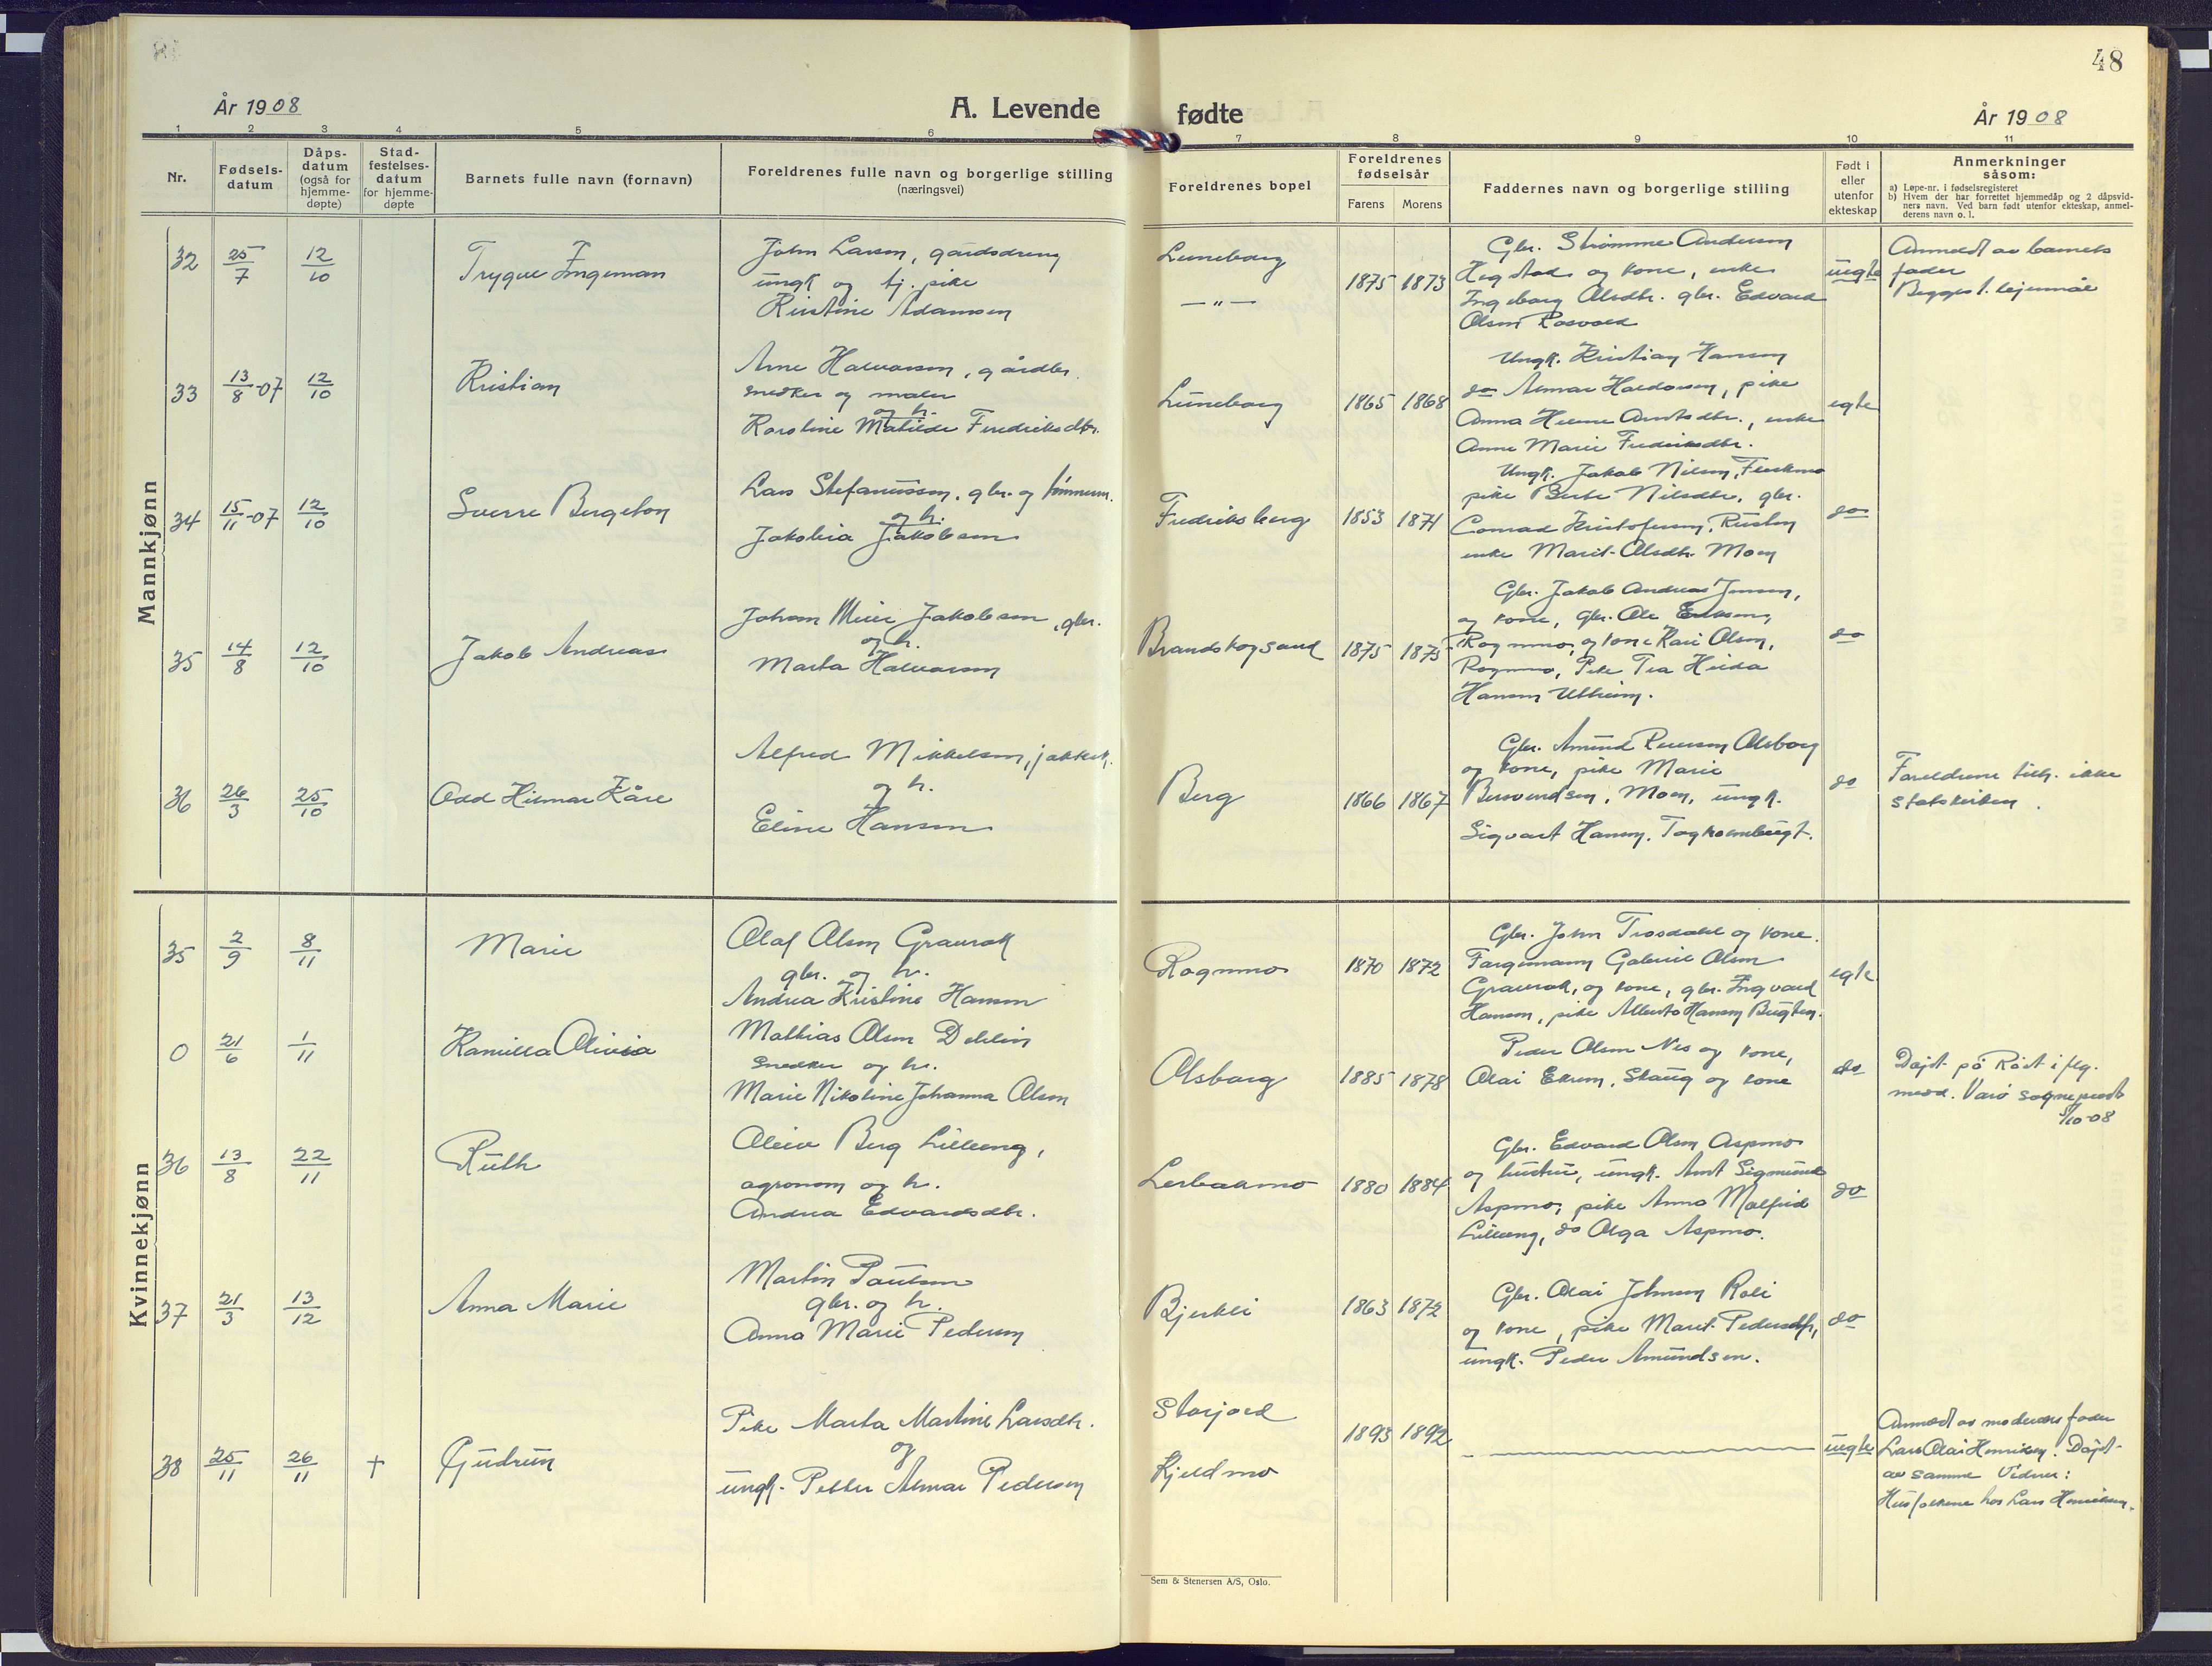 48
År 1908
A. Levende
fødte
År 1908
1 2 3 4 5 6 7 8 9 10 11
Nr.
Fødsels-
datum
Dåps-
datum
(også for
hjemme-
døpte)
Stad-
festelses-
datum
for hjemme-
døpte
Barnets fulle navn (fornavn)
Foreldrenes fulle navn og borgerlige stilling
(næringsvei)
Foreldrenes bopel
Foreldrenes
fødselsår
Farens Morens
Faddernes navn og borgerlige stilling
Født i
eller
utenfor
ekteskap
Anmerkninger
såsom:
a) Løpe-nr. i fødselsregisteret
b) Hvem der har forrettet hjemmedåp og 2 dåpsvid-
ners navn. Ved barn født utenfor ekteskap, anmel-
derens navn o. l.
Mannkjønn
32
25/7
12/10
Trygve Ingeman
John Larsen, gårdsdreng
ungk og tj. pike
Kristine Adamsen
Luneborg
— " —
1875 1873
Gbr. Strømme Andersen
Hegstad og kone, enke
Ingeborg Olsdtr. gbr. Edvard
Olsen Rosvold
uegte
Anmeldt av barnets
fader
Begges 1. leiermål
33
13/8-07
12/10
Kristian
Arne Halvorsen, gårdbr.
snedker og maler
og h.
Karoline Matilde Fredriksdtr.
Luneborg
1865 1868
Ungk. Kristian Hansen
do Almar Haldorsen, pike
Anna Helene Arntsdtr., enke
Anne Marie Fredriksdtr.
egte
34
15/11-07
12/10
Sverre Bergeton
Lars Stefanussen, gbr. og tømmerm.
og h.
Jakobia Jakobsen
Fredriksberg
1853 1871
Ungk. Jakob Nilsen, Fleskmo
pike Berte Nilsdtr, gbr.
Conrad Kristofersen, Rusten
enke Marit Olsdtr. Moen
do
35
14/8
12/10
Jakob Andreas
Johan Meier Jakobsen, gbr.
og h.
Marta Halvorsen
Brandskogsand
1875 1875
Gbr. Jakob Andreas Jensen,
og kone, gbr. Ole Eriksen,
Rognmo, og kone Kari Olsen,
Rognmo, Pike Tea Hilda
Hansen Utheim.
do
36
26/3
25/10
Odd Hilmar Kåre
Alfred Mikkelsen,
og h.
Eline Hansen
Berg
1866 1867
Gbr. Amund Peersen Olsborg
og kone, pike Marie
Bersvendsen, Moen, ungk.
Sigvart Hansen.
do
Foreldrene tilh. ikke
statskirken.
Kvinnekjønn
35
2/9
8/11
Marie
Olaf Olsen Gravrok
gbr. og h.
Andrea Kristine Hansen
Rognmo
1870 1872
Gbr. John Trosdahl og kone.
Fargemann Gabriel Olsen
Gravrok, og kone, gbr. Ingvard
Hansen, pike Alberta Hansen Bugten.
egte
0
21/6
1/11
Kamilla Olivia
Mathias Olsen Dehlin
Snedker og h.
Marie Nikoline Johanna Olsen
Olsborg
1885 1878
Peder Olsen Nes og kone,
Olai Ekren, Staug og kone
do
Døpt på Røst iflg.
medd. Værø sogneprest
5/10-08
36
13/8
22/11
Ruth
Oliver Berg Lilleeng,
agronom og h.
Andrea Edvardsdtr.
Lerbakmo
1880 1884
Gbr. Edvard Olsen Aspmo
og hustru, ungk. Arnt Sigmund
Aspmo, pike Anna Malfrid
Lilleeng, do Olga Aspmo.
do
37
21/3
13/12
Anna Marie
Martin Paulsen
gbr. og h.
Anna Marie Pedersen
Bjerkli
1863 1872
Gbr. Olai Johnsen Roli
og kone, pike Marit Pedersdtr,
ungk. Peder Amundsen.
do
38
25/11
26/11
+
Gudrun
Pike Marta Martine Larsdtr.
og
ungk. Petter Almar Pedersen
Storjord
Kjeldmo
1893 1892
uegte
Anmeldt av moderens fader
Lars Olai Henriksen. Døpt
av samme Vidner:
Husfolkene hos Lars Henriksen.
Sem & Stenersen A/S, Oslo.